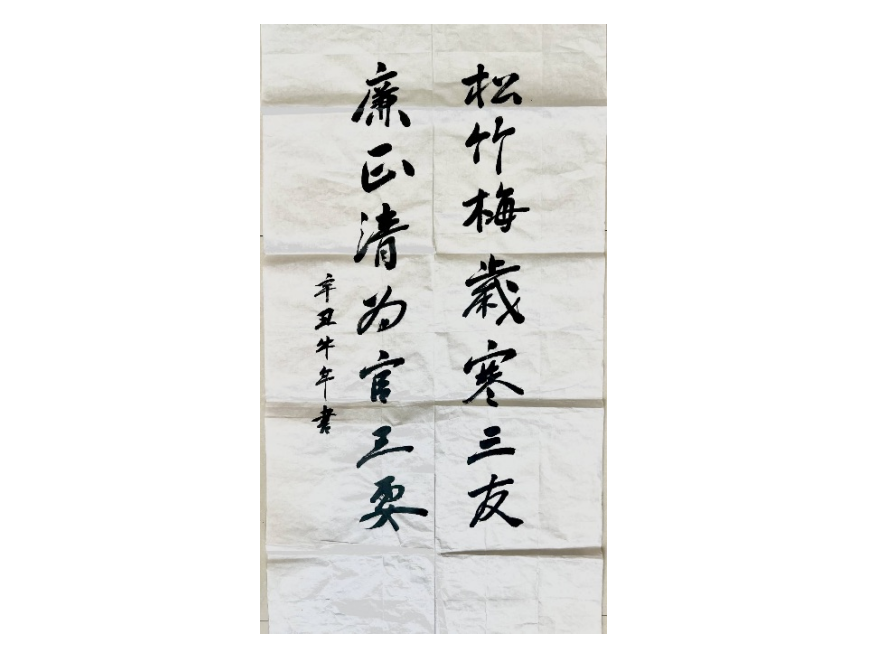 松竹梅歲寒三友
廉正清为官三要
辛丑牛年書